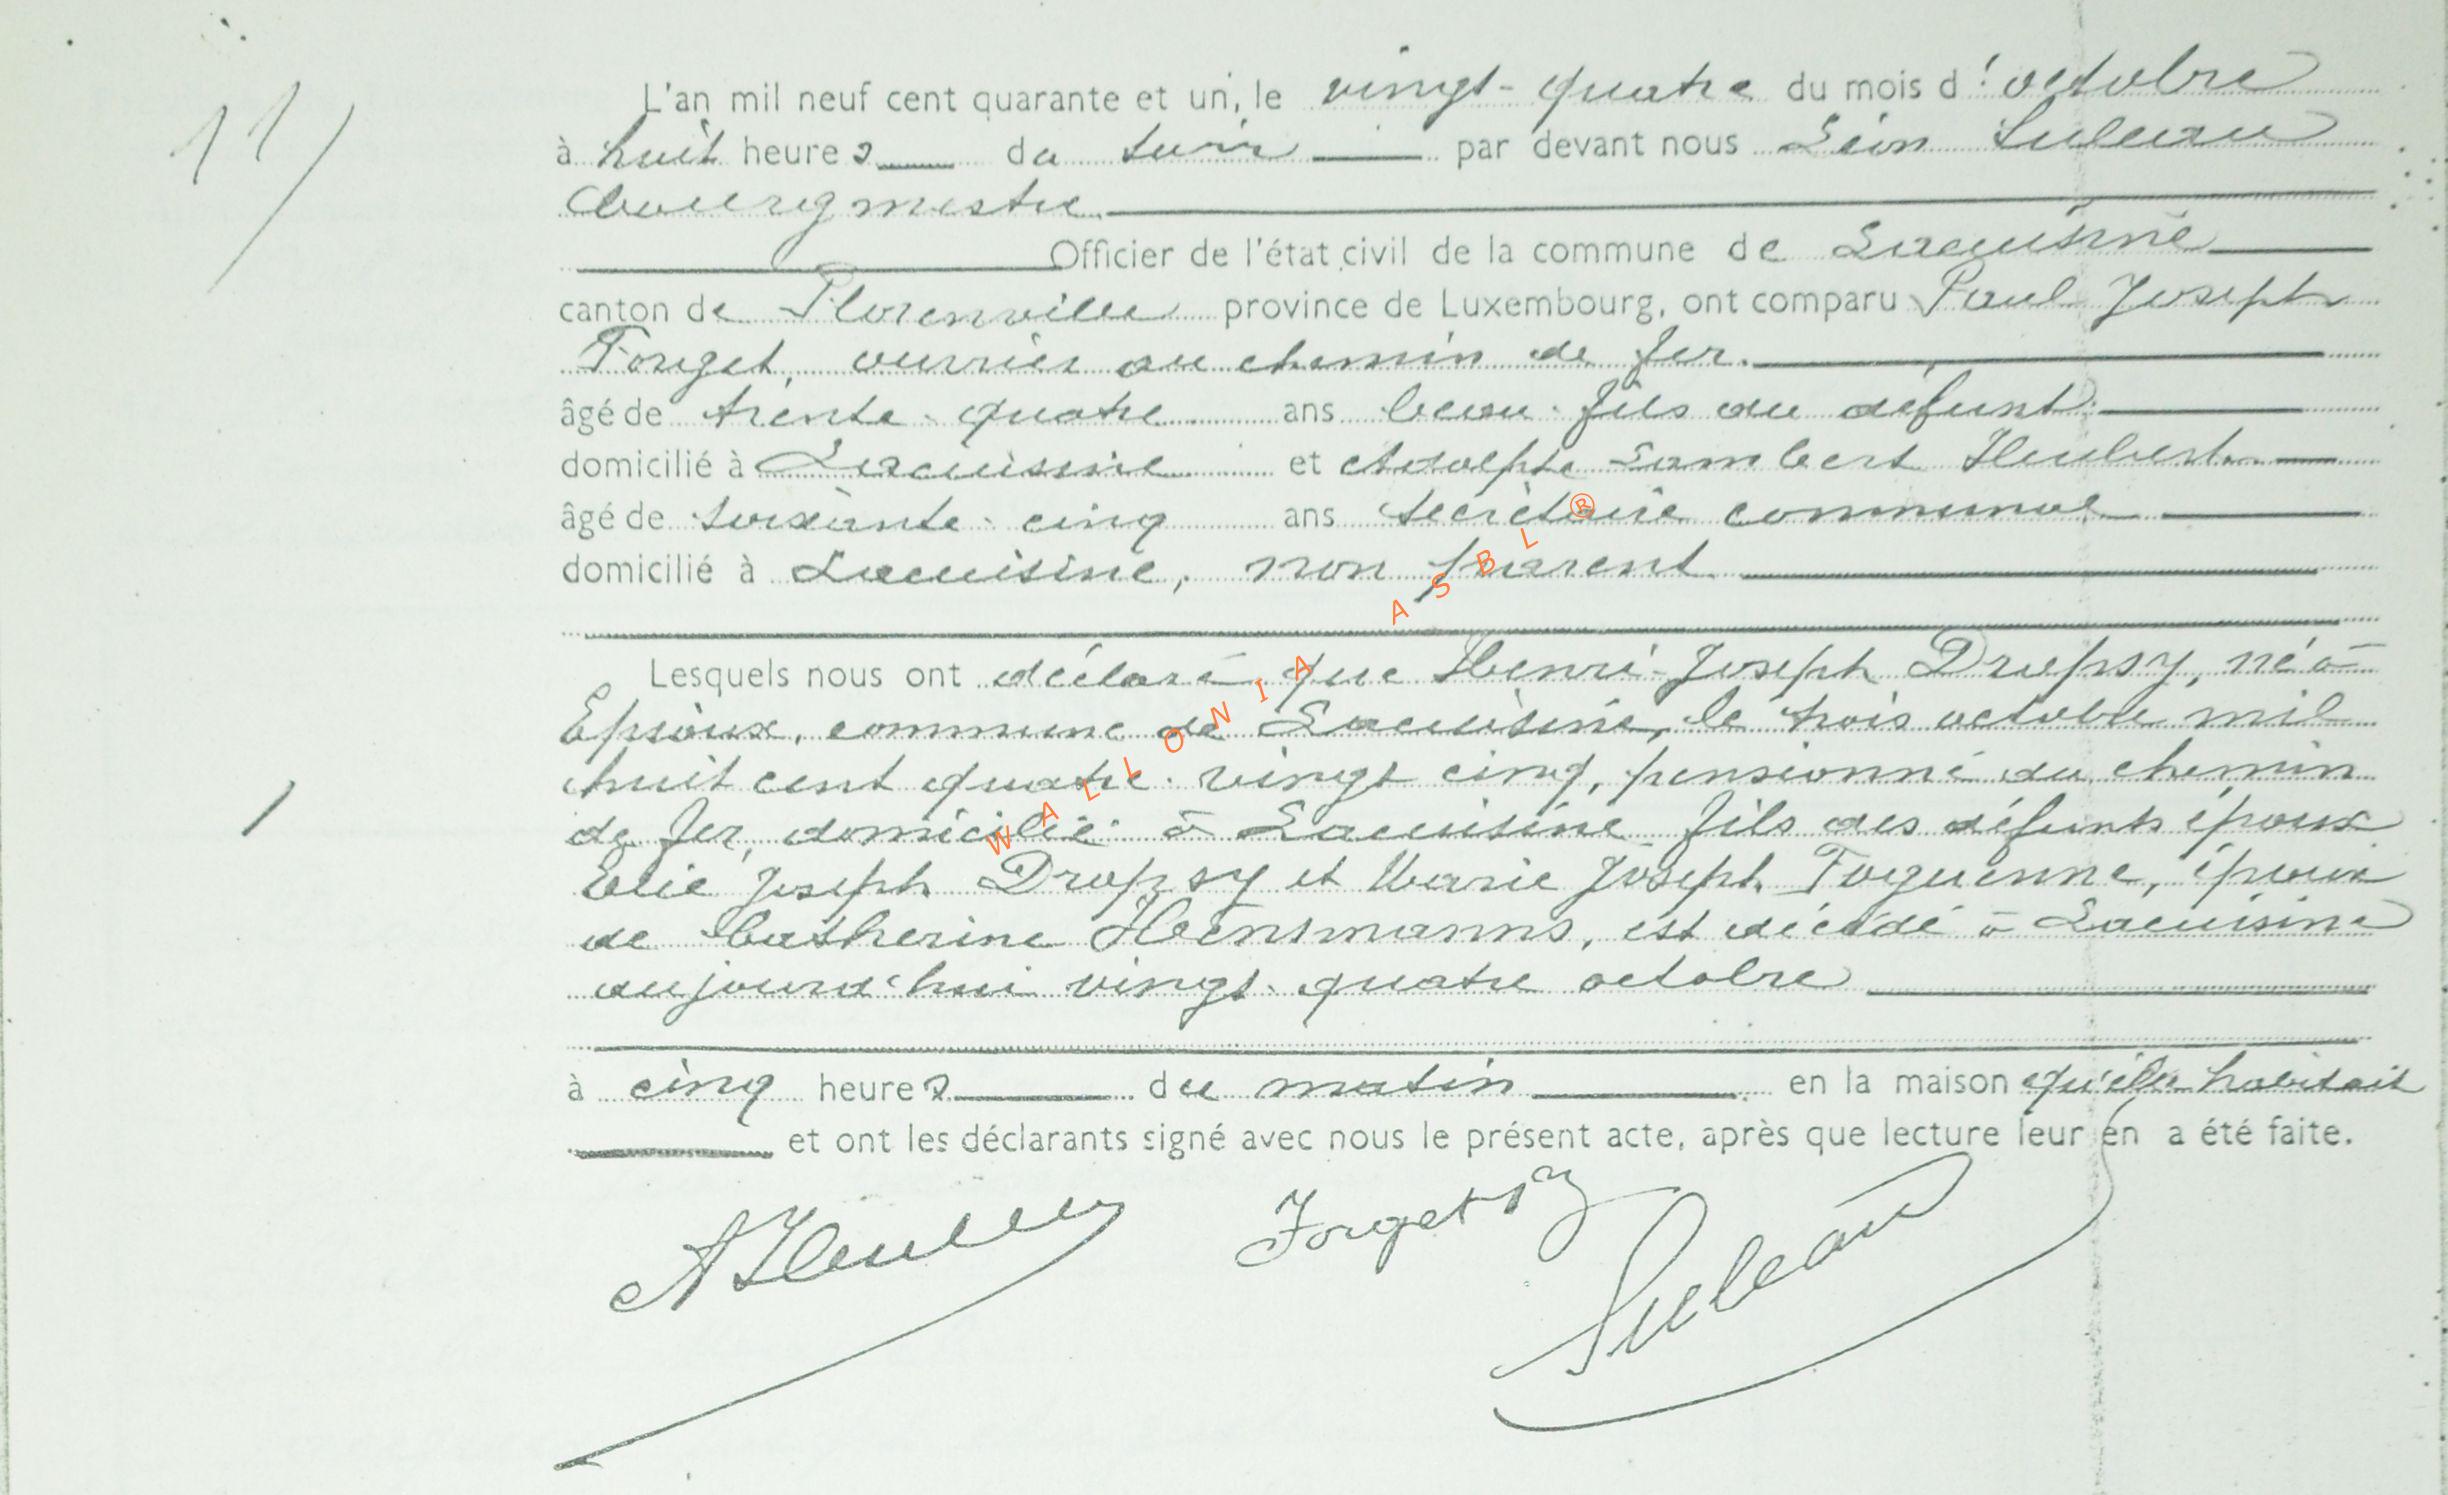 11/
L'an mil neuf cent quarante et un, le vingt-quatre du mois d'octobre
à huit heures du soir par devant nous Léon Suleau
bourgmestre
Officier de l'état civil de la commune de Lacuisine
canton de Florenville province de Luxembourg, ont comparu Paul Joseph
Forget, ouvrier au chemin de fer.
âgé de trente-quatre ans beau-fils du défunt
domicilié à Lacuisine et Adolphe Lambert Heubert
âgé de soixante-cinq ans secrétaire communal
domicilié à Lacuisine, non parent
Lesquels nous ont déclaré que Henri-Joseph Dropsy, né à
Epioux, commune de Lacuisine, le trois octobre mil
huit cent quatre-vingt cinq, pensionné du chemin
de fer, domicilié à Lacuisine fils des défunts époux
Elie Joseph Dropsy et Marie Joseph Foguenne, époux
de Catherine Hensmanns, est décédé à Lacuisine
aujourd'hui vingt-quatre octobre
à cinq heures du matin en la maison qu'il habitait
et ont les déclarants signé avec nous le présent acte, après que lecture leur en a été faite.
Forget
Suleau
WALLONIA ASBL®